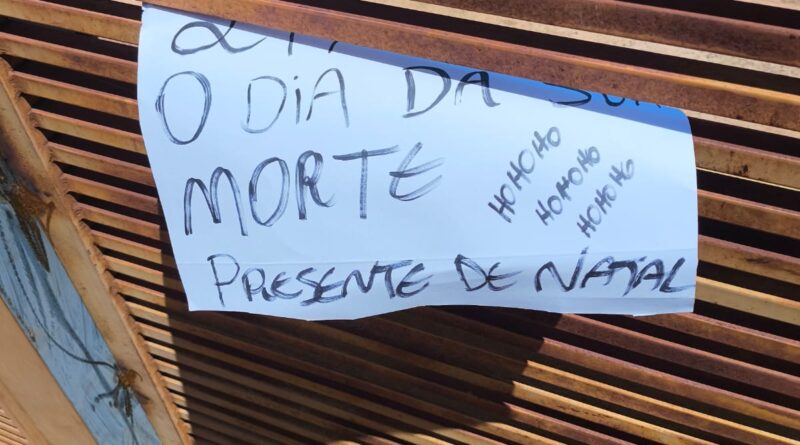 O DIA DA SUA
MORTE
HOHOHO
HOHOHO
HOHOHO
PRESENTE DE NATAL